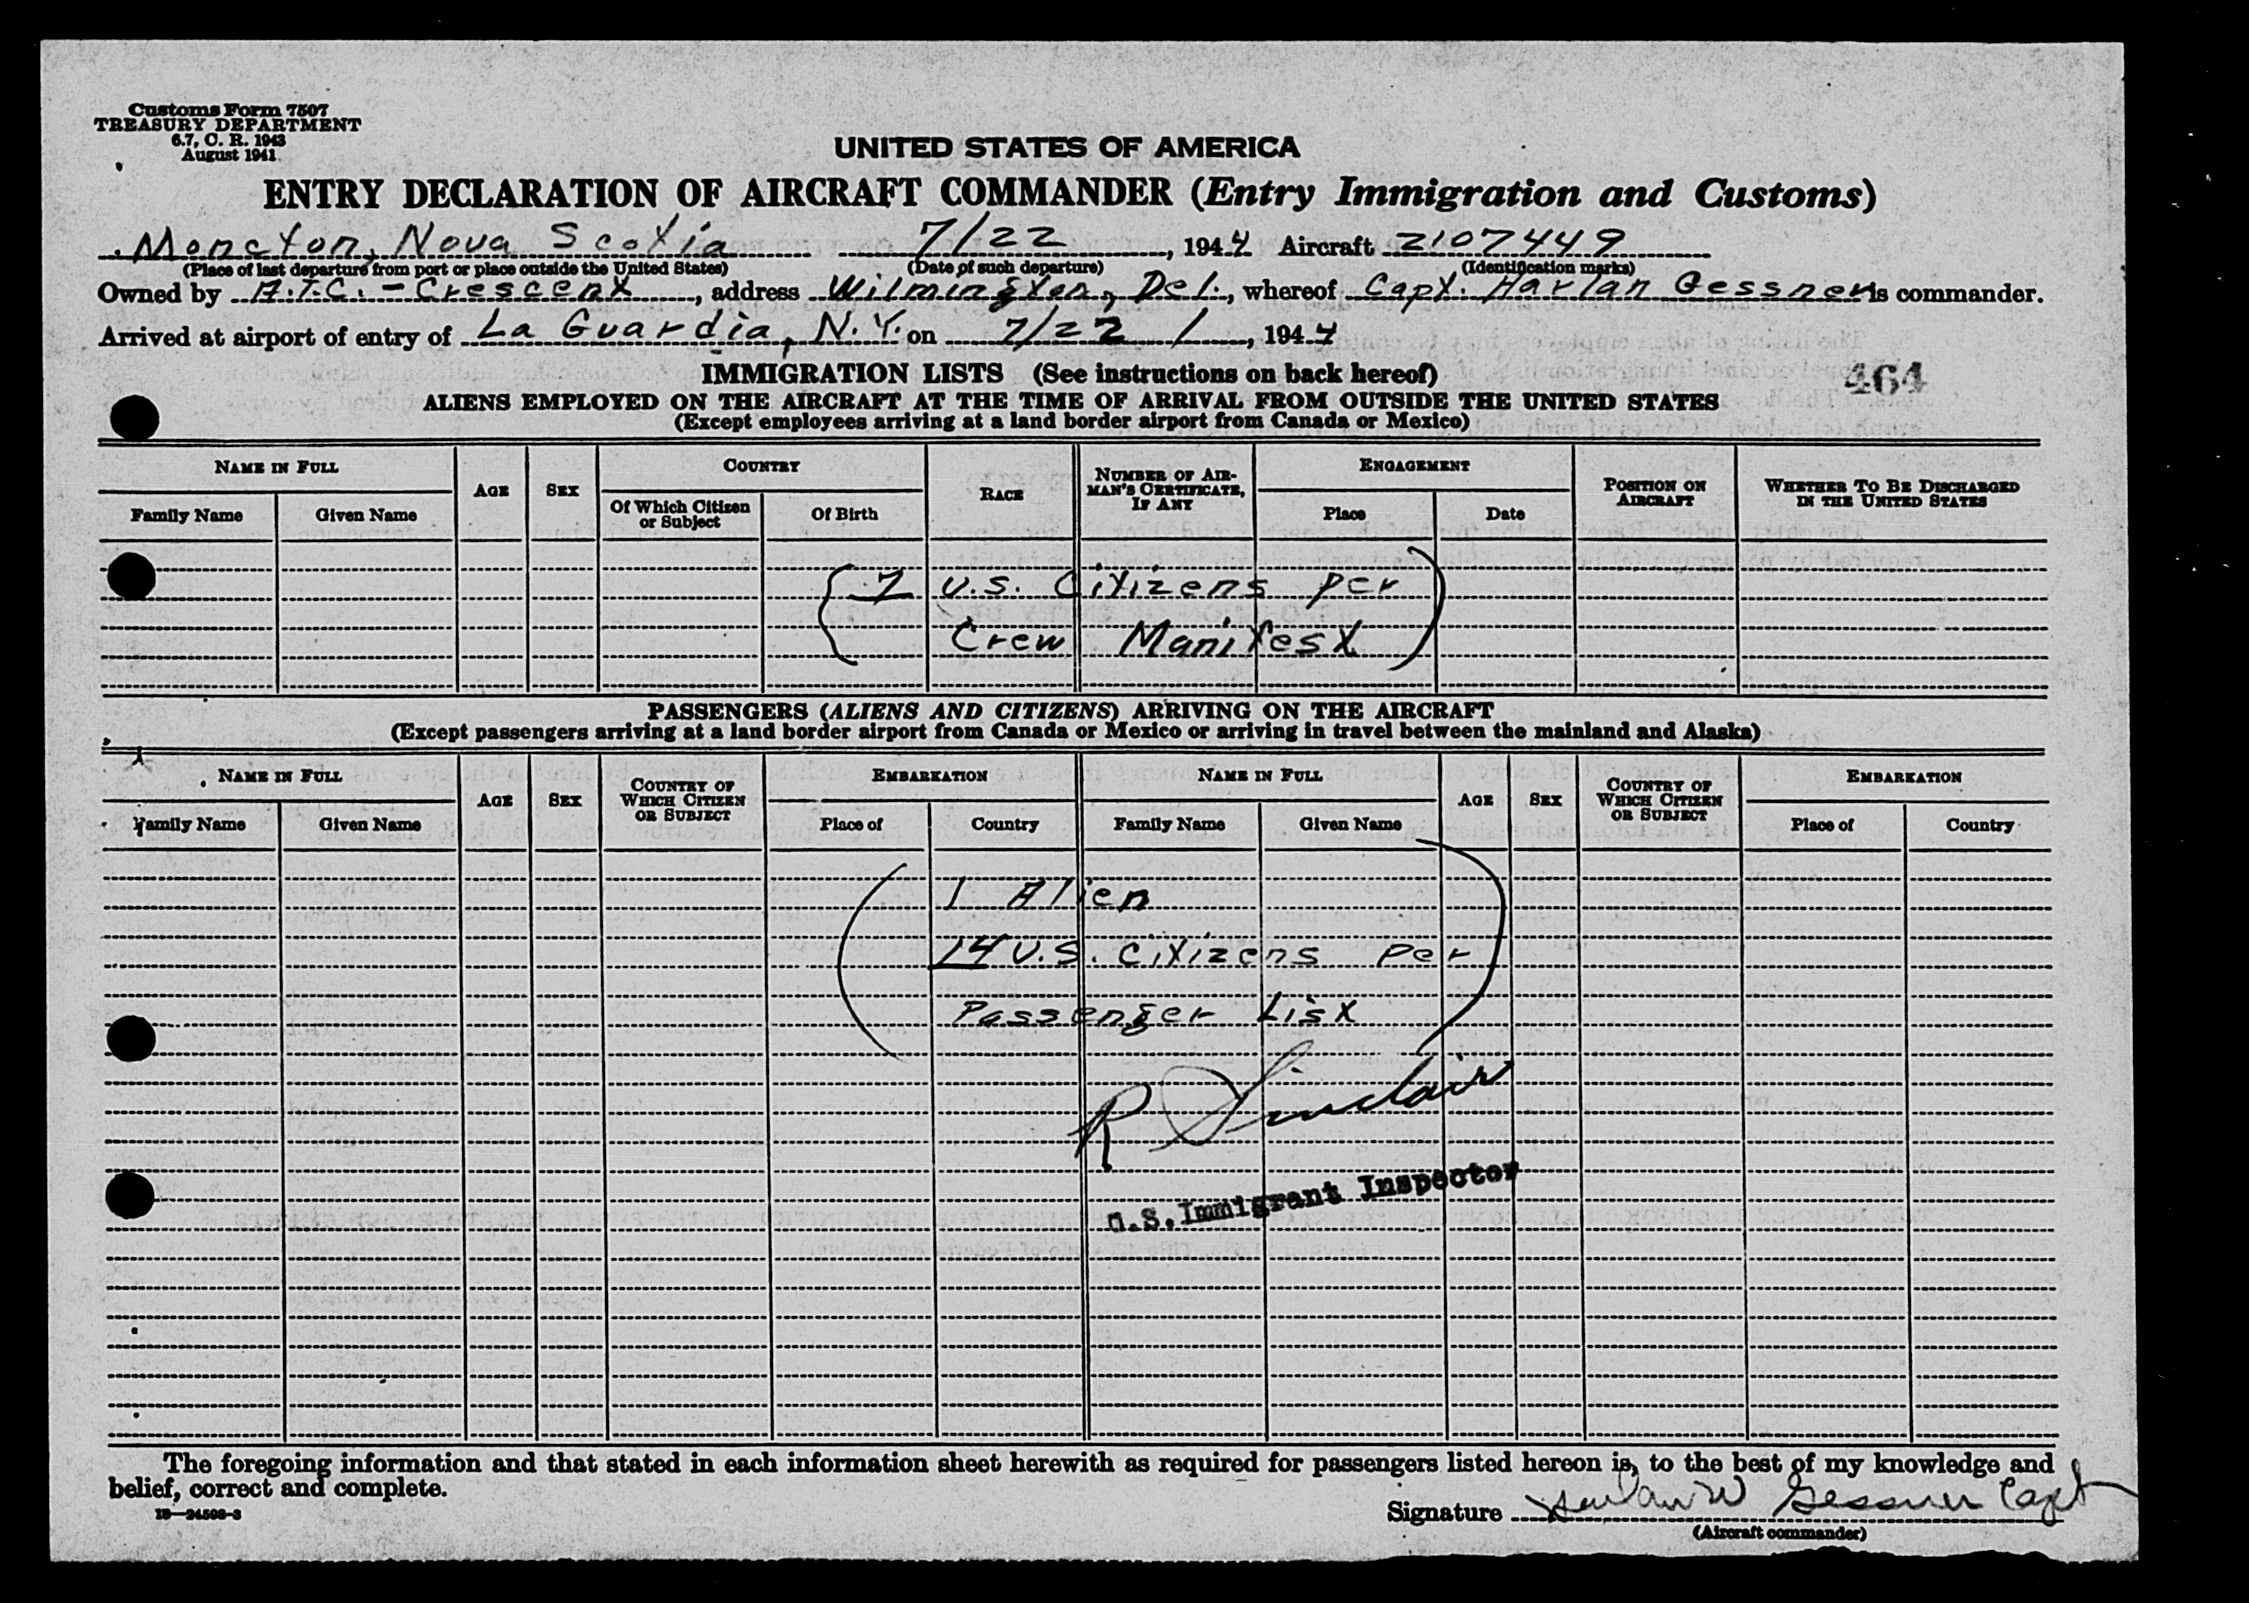 Customs Form 7507
TREASURY DEPARTMENT
6.7, C. R. 1943
August 1941
UNITED STATES OF AMERICA
ENTRY DECLARATION OF AIRCRAFT COMMANDER (Entry Immigration and Customs)
Moncton, Nova Scotia 7/22, 1944 Aircraft 2107449
(Place of last departure from port or place outside the United States) (Date of such departure) (Identification marks)
Owned by A.T.C. - Crescent, address Wilmington, Del., whereof Capt. Harlan Gessner is commander.
Arrived at airport of entry of La Guardia, N.Y. on 7/22 /, 1944
IMMIGRATION LISTS (See instructions on back hereof)
464
ALIENS EMPLOYED ON THE AIRCRAFT AT THE TIME OF ARRIVAL FROM OUTSIDE THE UNITED STATES
(Except employees arriving at a land border airport from Canada or Mexico)
NAME IN FULL AGE SEX COUNTRY RACE NUMBER OF AIRMAN'S CERTIFICATE, IF ANY ENGAGEMENT POSITION ON AIRCRAFT WHETHER TO BE DISCHARGED IN THE UNITED STATES
Family Name Given Name Of Which Citizen or Subject Of Birth Place Date
(7 U.S. Citizens per
Crew Manifest)
PASSENGERS (ALIENS AND CITIZENS) ARRIVING ON THE AIRCRAFT
(Except passengers arriving at a land border airport from Canada or Mexico or arriving in travel between the mainland and Alaska)
NAME IN FULL AGE SEX COUNTRY OF WHICH CITIZEN OR SUBJECT EMBARKATION NAME IN FULL AGE SEX COUNTRY OF WHICH CITIZEN OR SUBJECT EMBARKATION
Family Name Given Name Place of Country Family Name Given Name Place of Country
(1 Alien
14 U.S. Citizens per
Passenger List)
R Sinclair
U.S. Immigrant Inspector
The foregoing information and that stated in each information sheet herewith as required for passengers listed hereon is, to the best of my knowledge and
belief, correct and complete.
16—24598-3
Signature Harlan W Gessner Capt
(Aircraft commander)